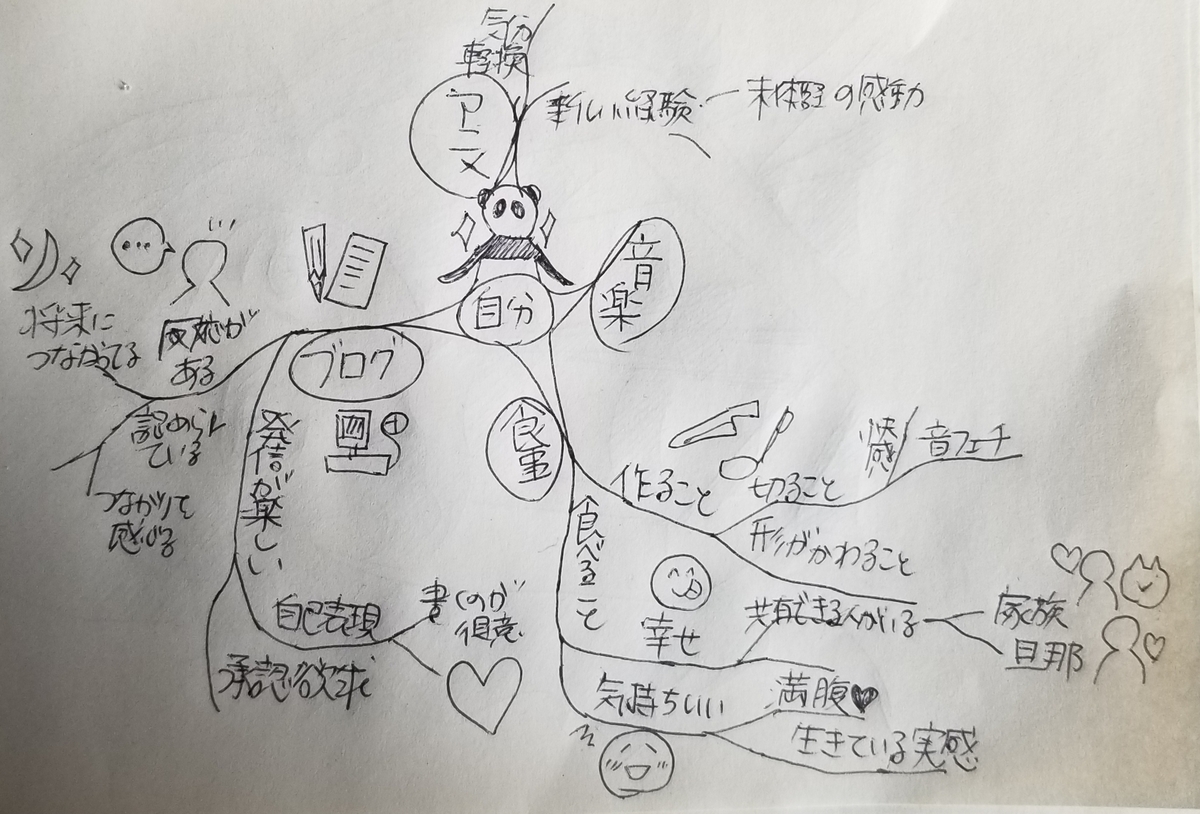 気分
転換
アニメ
新しい経験
未体験の感動
自分
音楽
ブログ
反応が
ある
将来に
つながってる
認められ
ている
つながりを
感じる
発信が楽しい
自己表現
書くのが
得意
承認欲求
食事
作ること
切ること
快感
音フェチ
形がかわること
食べること
幸せ
共有できる人がいる
家族
旦那
気持ちいい
満腹
生きている実感